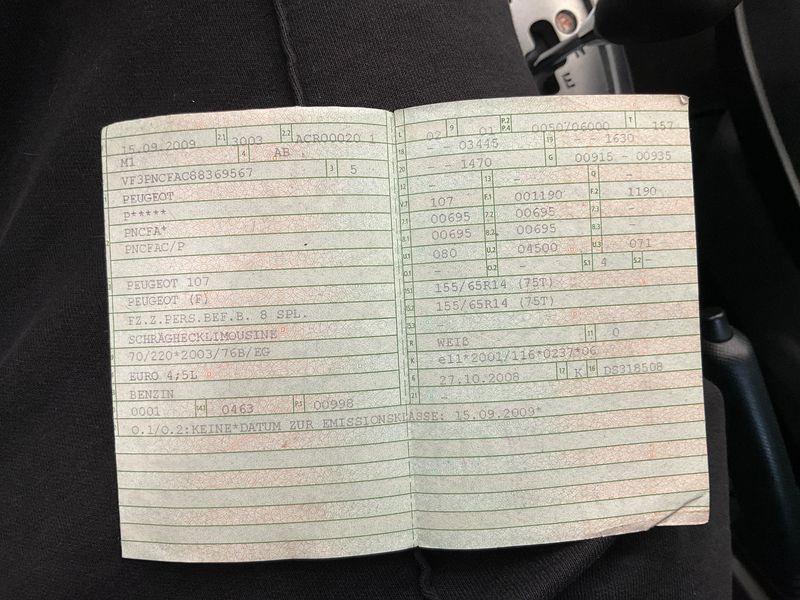 15.09.2009 2.1 3003 2.2 ACR00020 1
M1 4 AB
VF3PNCFAC88369567 3 5
PEUGEOT
P*****
PNCFA*
PNCFAC/P
PEUGEOT 107
PEUGEOT (F)
FZ.Z.PERS.BEF.B. 8 SPL.
SCHRÄGHECKLIMOUSINE
70/220*2003/76B/EG
EURO 4;5L
BENZIN
0001 14.1 0463 P.1 00998
L 02 9 01 P.2 P.4 0050/06000 T 157
18 - - 03445 19 - - 1630
20 - - 1470 G 00915 - 00935
12 - 13 - Q -
V.7 107 F.1 001190 F.2 1190
7.1 00695 7.2 00695 7.3 -
8.1 00695 8.2 00695 8.3 -
U.1 080 U.2 04500 U.3 071
O.1 - O.2 - S.1 4 S.2 -
15.1 155/65R14 (75T)
15.2 155/65R14 (75T)
15.3 -
R WEIß 11 0
K e11*2001/116*0237*06
6 27.10.2008 17 K 16 DS318508
21 -
O.1/O.2:KEINE*DATUM ZUR EMISSIONSKLASSE: 15.09.2009*